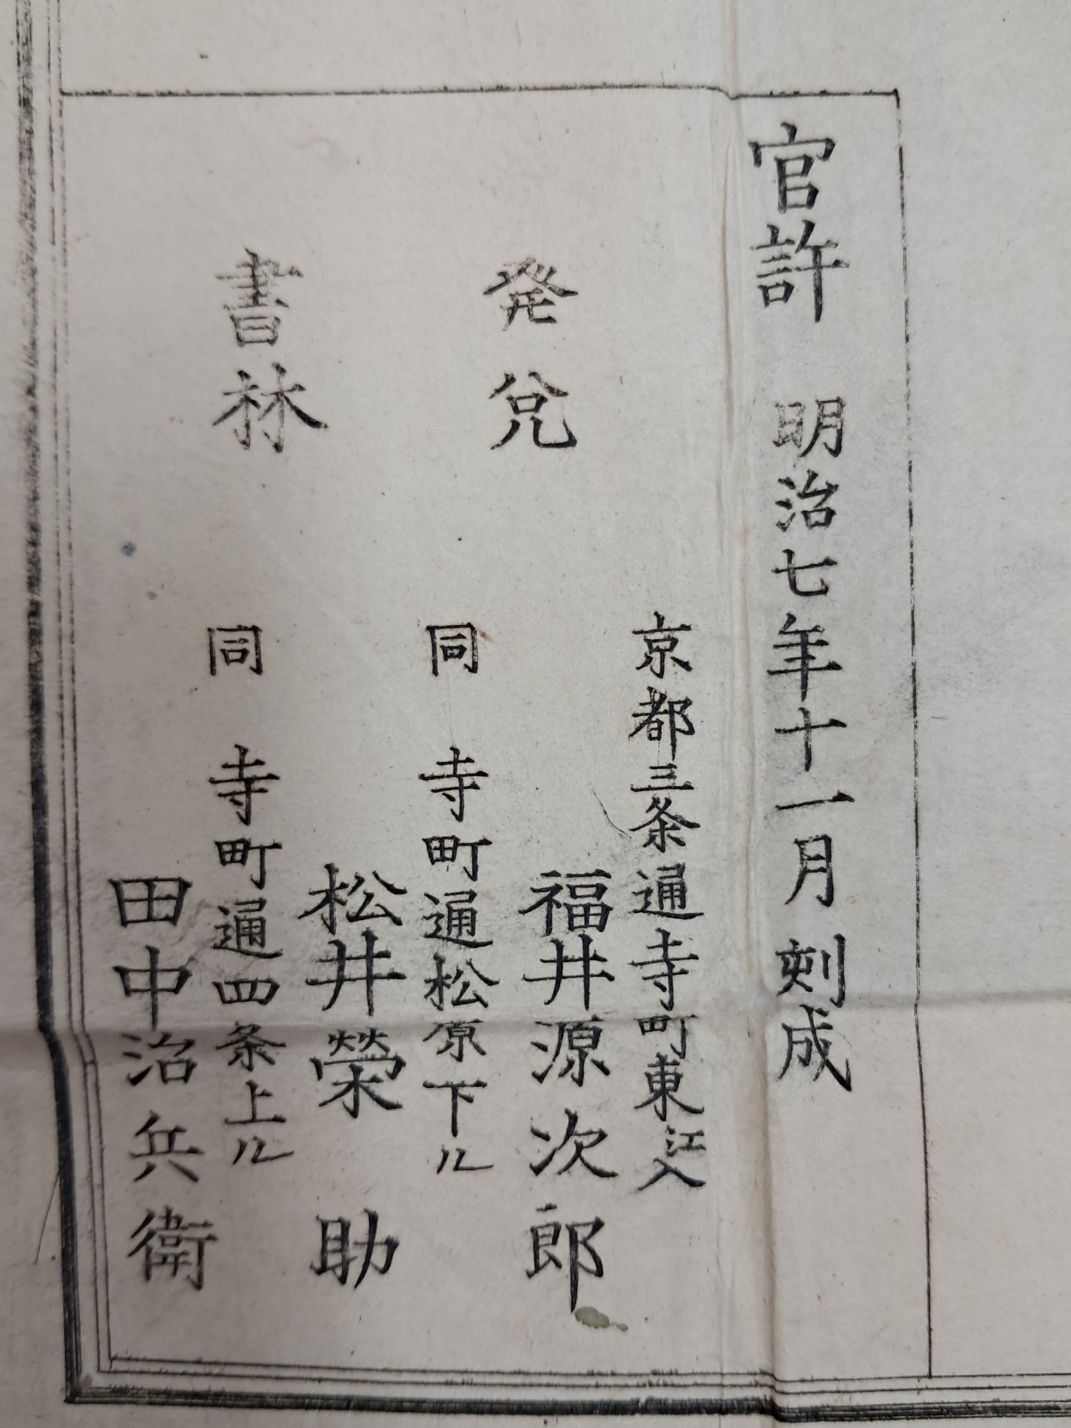 官許 明治七年十一月刻成
京都三条通寺町東江入
福井源次郎
発兌
同 寺町通松原下ル
松井榮助
書林
同 寺町通四条上ル
田中治兵衛